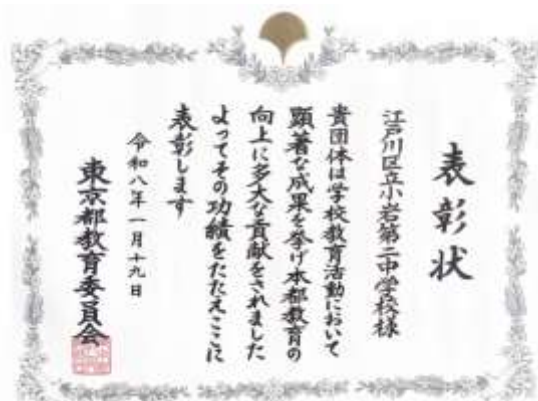 表彰状
江戸川区立小岩第二中学校様
貴団体は学校教育活動において
顕著な成果を挙げ本都教育の
向上に多大な貢献をされました
よってその功績をたたえここに
表彰します
令和八年一月十九日
東京都教育委員会